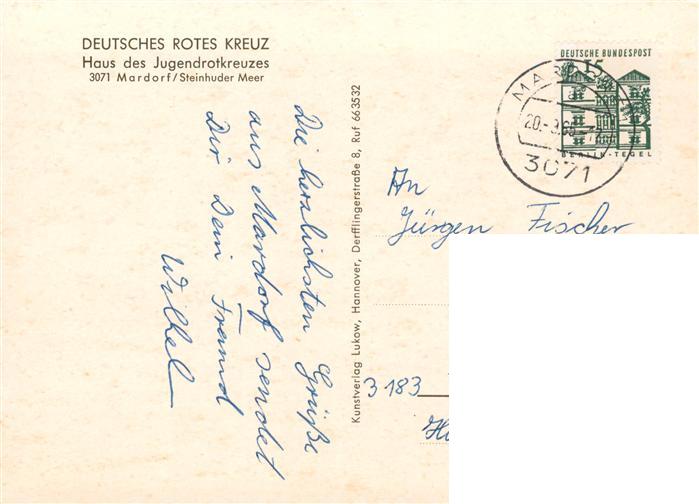 DEUTSCHES ROTES KREUZ
Haus des Jugendrotkreuzes
3071 Mardorf/Steinhuder Meer
Die herzlichsten Grüße
aus Mardorf sendet
Dir Dein Freund
Wilhel
Kunstverlag Lukow, Hannover, Derfflingerstraße 8, Ruf 663532
DEUTSCHE BUNDESPOST
15
BERLIN-TEGEL
MARDORF
3071
An
Jürgen Fischer
3183